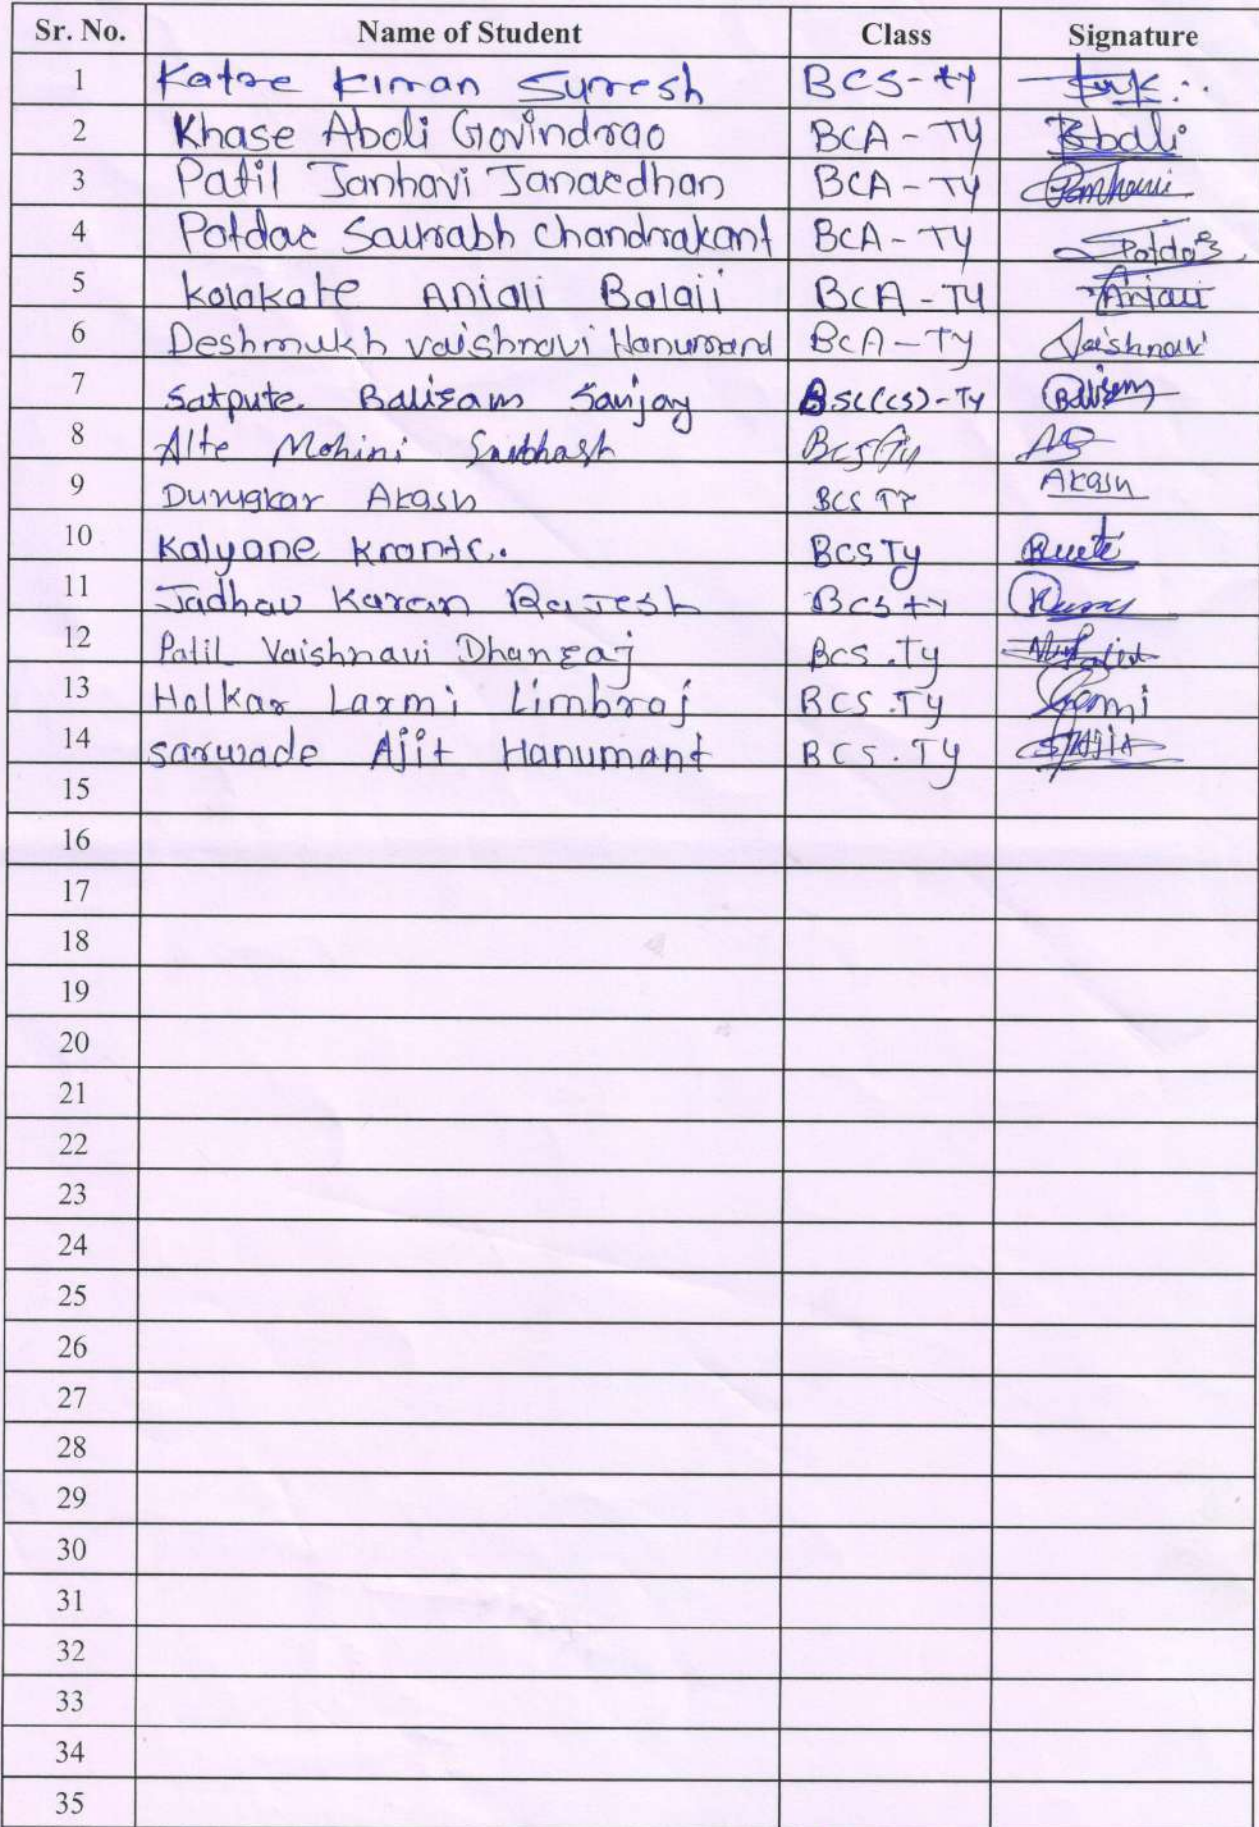 Sr. No. Name of Student Class Signature
1 Katre Kiran Suresh BCS-ty
2 Khase Aboli Govindrao BCA-TY Aboli
3 Patil Janhavi Janardhan BCA-TY Janhavi
4 Potdar Saurabh Chandrakant BCA-TY Potdar
5 Kolakate Anjali Balaji BCA-TY Anjali
6 Deshmukh Vaishnavi Hanumant BCA-TY Vaishnavi
7 Satpute Baliram Sanjay BSC(CS)-TY Baliram
8 Alte Mohini Subhash BCS
9 Durugkar Akash BCS TY Akash
10 Kalyane Kranti. BCS Ty
11 Jadhav Karan Rajesh BCS ty
12 Patil Vaishnavi Dhanraj BCS.Ty
13 Holkar Laxmi Limbraj BCS.TY
14 Sarwade Ajit Hanumant BCS.TY
15
16
17
18
19
20
21
22
23
24
25
26
27
28
29
30
31
32
33
34
35